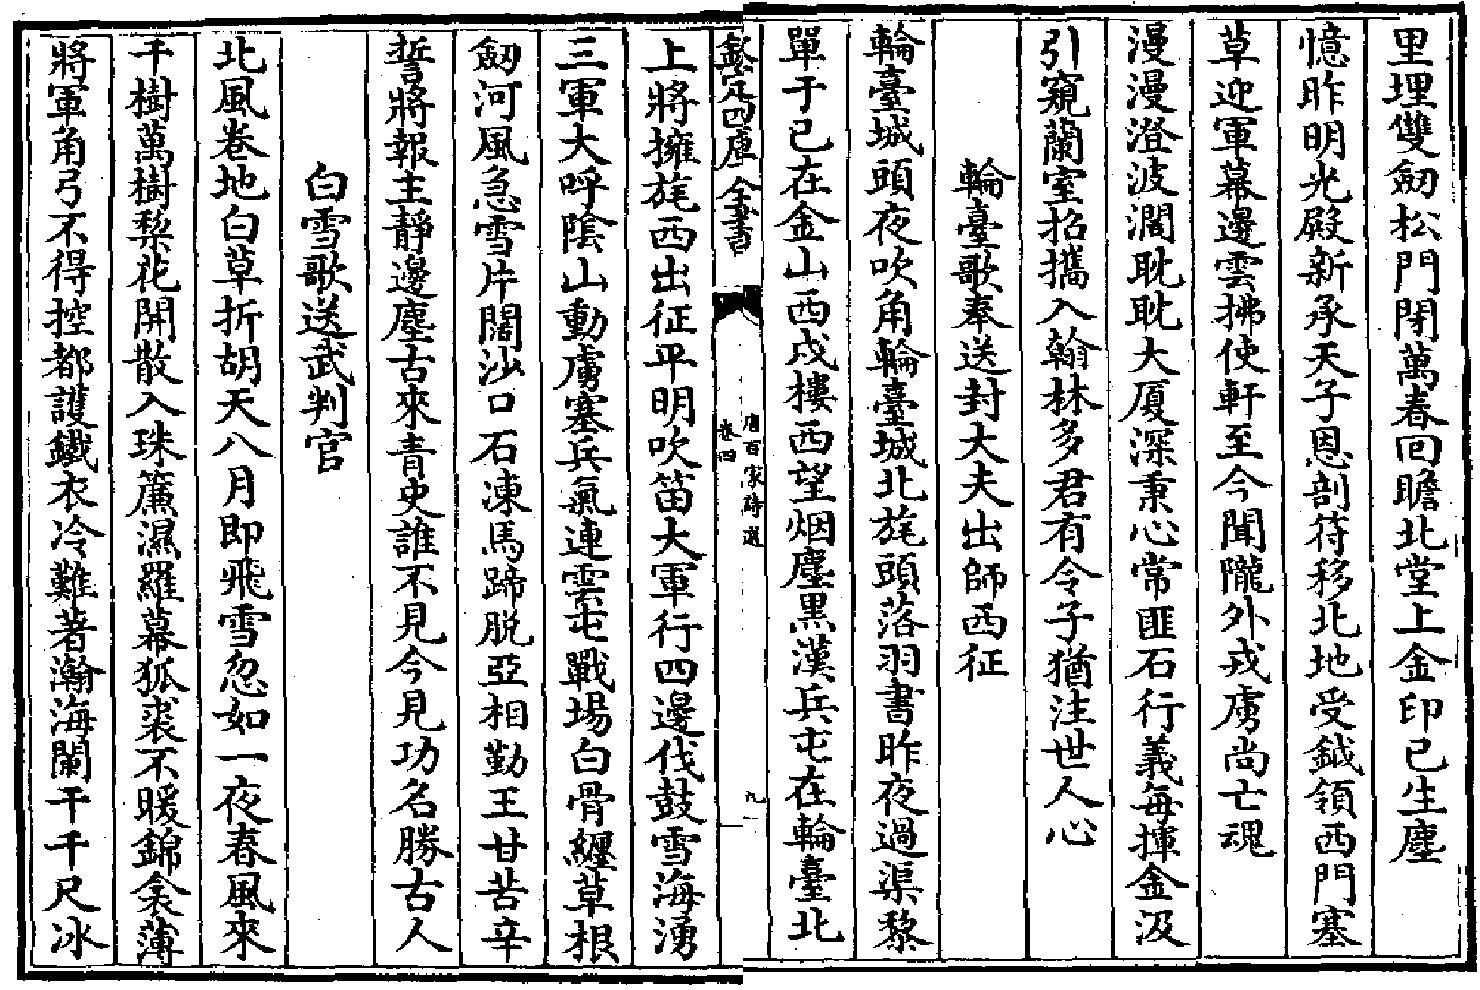 里埋雙劒松門閉萬春回瞻北堂上金印已生塵
憶昨明光殿新承天子恩剖符移北地受鉞領西門塞
草迎軍幕邊雲拂使軒至今聞隴外戎虜尚亡魂
漫漫澄波濶耽耽大厦深秉心常匪石行義每揮金汲
引窺蘭室招攜入翰林多君有令子猶注世人心
輪臺歌奉送封大夫出師西征
輪臺城頭夜吹角輪臺城北旄頭落羽書昨夜過渠黎
單于已在金山西戍樓西望烟塵黒漢兵屯在輪臺北
欽定四庫全書
唐百家詩選
卷四
九
上將擁旄西出征平明吹笛大軍行四邊伐鼓雪海湧
三軍大呼隂山動虜塞兵氣連雲屯戰場白骨纏草根
劒河風急雪片闊沙口石凍馬蹄脱亞相勤王甘苦辛
誓將報主靜邊塵古來青史誰不見今見功名勝古人
白雪歌送武判官
北風卷地白草折胡天八月即飛雪忽如一夜春風來
千樹萬樹梨花開散入珠簾濕羅幕狐裘不暖錦衾薄
將軍角弓不得控都護鐵衣冷難著瀚海闌干千尺冰